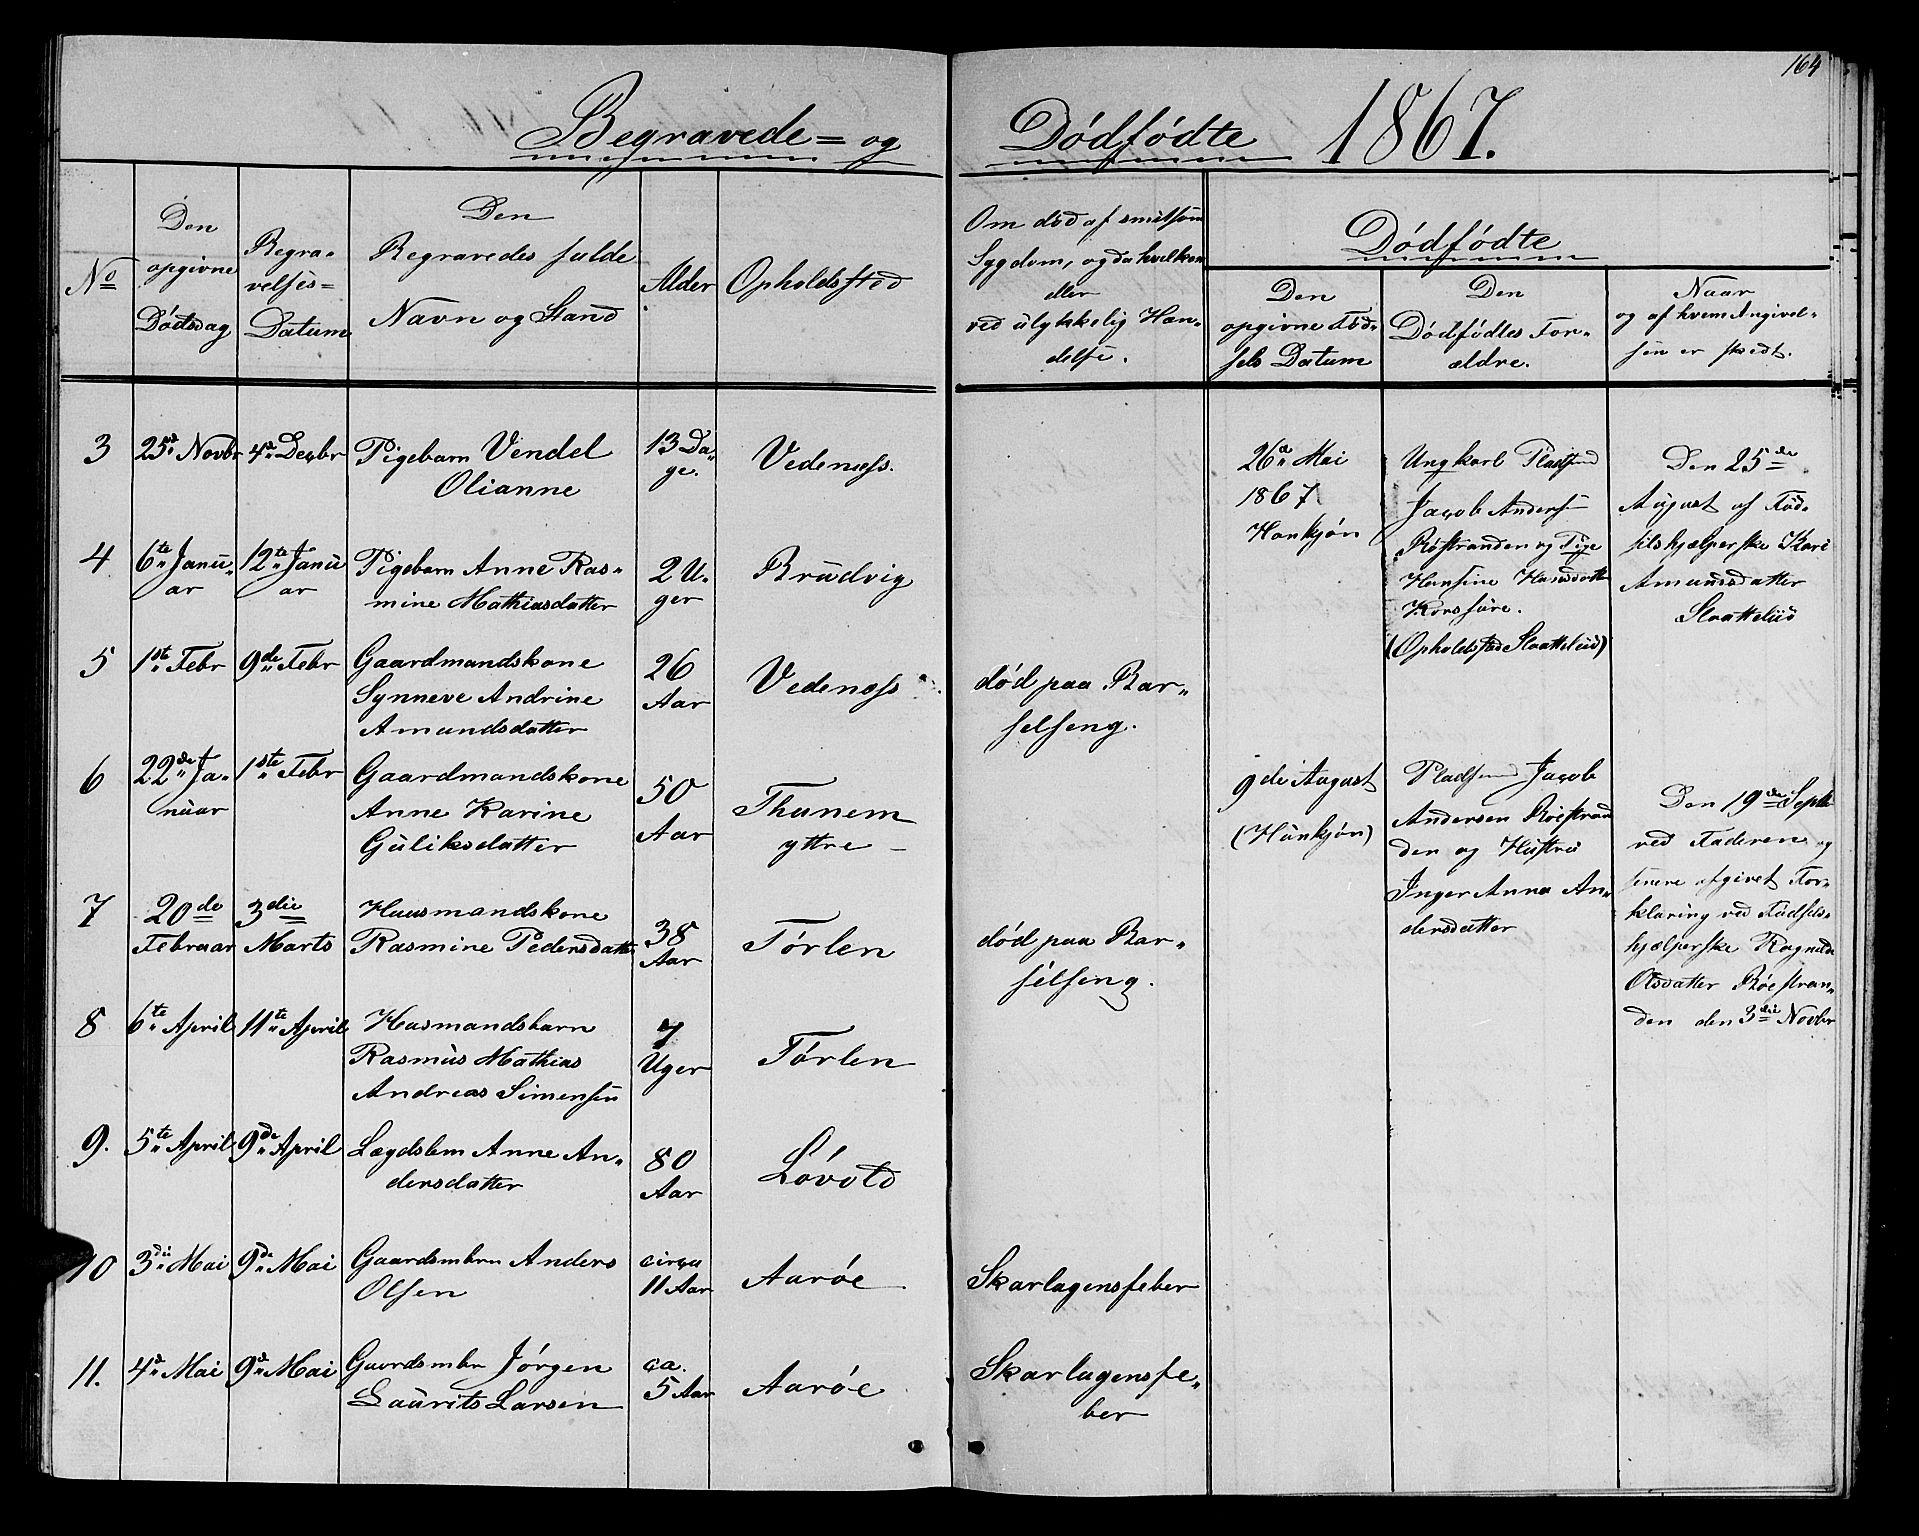 164
Begravede= og Dödfödte 1867.
No
Den
opgivne
Dödsdag
Begra-
velses=
Datum
Den
Begravedes fulde
Navn og Stand
Alder
Opholdssted
Om död af smitsom
Sygdom, og da hvilken
eller
ved ulykkelig Hæn-
delse.
Dödfödte
Den
opgivne Föd-
sels Datum
Den
Dödfödtes For-
ældre.
Naar
og af hvem Angivel-
sen er skedt.
3
25de Novbr
4de Decbr
Pigebarn Vendel
Olianne
13 Da-
ge.
Vedenæss.
26de Mai
1867
Hankjön
Ungkarl Pladsmd
Jacob Anders
Röstranden og Pige
Hansine Hansdatter
Korsfure.
(Opholdssted Slaattelid)
Den 25de
August af Föd-
selshjælperske Kari
Amundsdatter
Slaattelid
4
6te Janu-
ar
12te Janu
ar
Pigebarn Anne Ras-
mine Mathiasdatter
2 U-
ger
Brudvig
5
1ste Febr
9de Febr
Gaardmandskone
Synneve Andrine
Amundsdatter
26
Aar
Vedenæss
död paa Bar-
selseng.
6
22de Ja-
nuar
1ste Febr
Gaardmandskone
Anne Karine
Guliksdatter
50
Aar
Thunem
yttre
9de August
(Hunkjön)
Pladsmd Jacob
Andersen Röistran
den og Hustru
Inger Anna An-
dersdatter
Den 19de Septbr
ved Faderen og
senere afgivet For-
klaring ved Födsels-
hjælperske Ragnilde
Olsdatter Röestran-
den den 3die Novbr
7
20de
Februar
3die
Marts
Huusmandskone
Rasmine Pedersdatter
38
Aar
Törlen
död paa Bar-
selseng.
8
6te April
11te April
Husmandsbarn
Rasmus Mathias
Andreas Simensen
7
Uger
Törlen
9.
5te April
9de April
Lægdslem Anne An-
dersdatter
80
Aar
Lövold
10
3die Mai
9de Mai
Gaardsmbrn Anders
Olsen
circa
11 Aar
Aaröe
Skarlagensfeber
11.
4de Mai
9de Mai
Gaardsmbr Jörgen
Laurits Larsen
ca.
5 Aar
Aaröe
Skarlagensfe-
ber